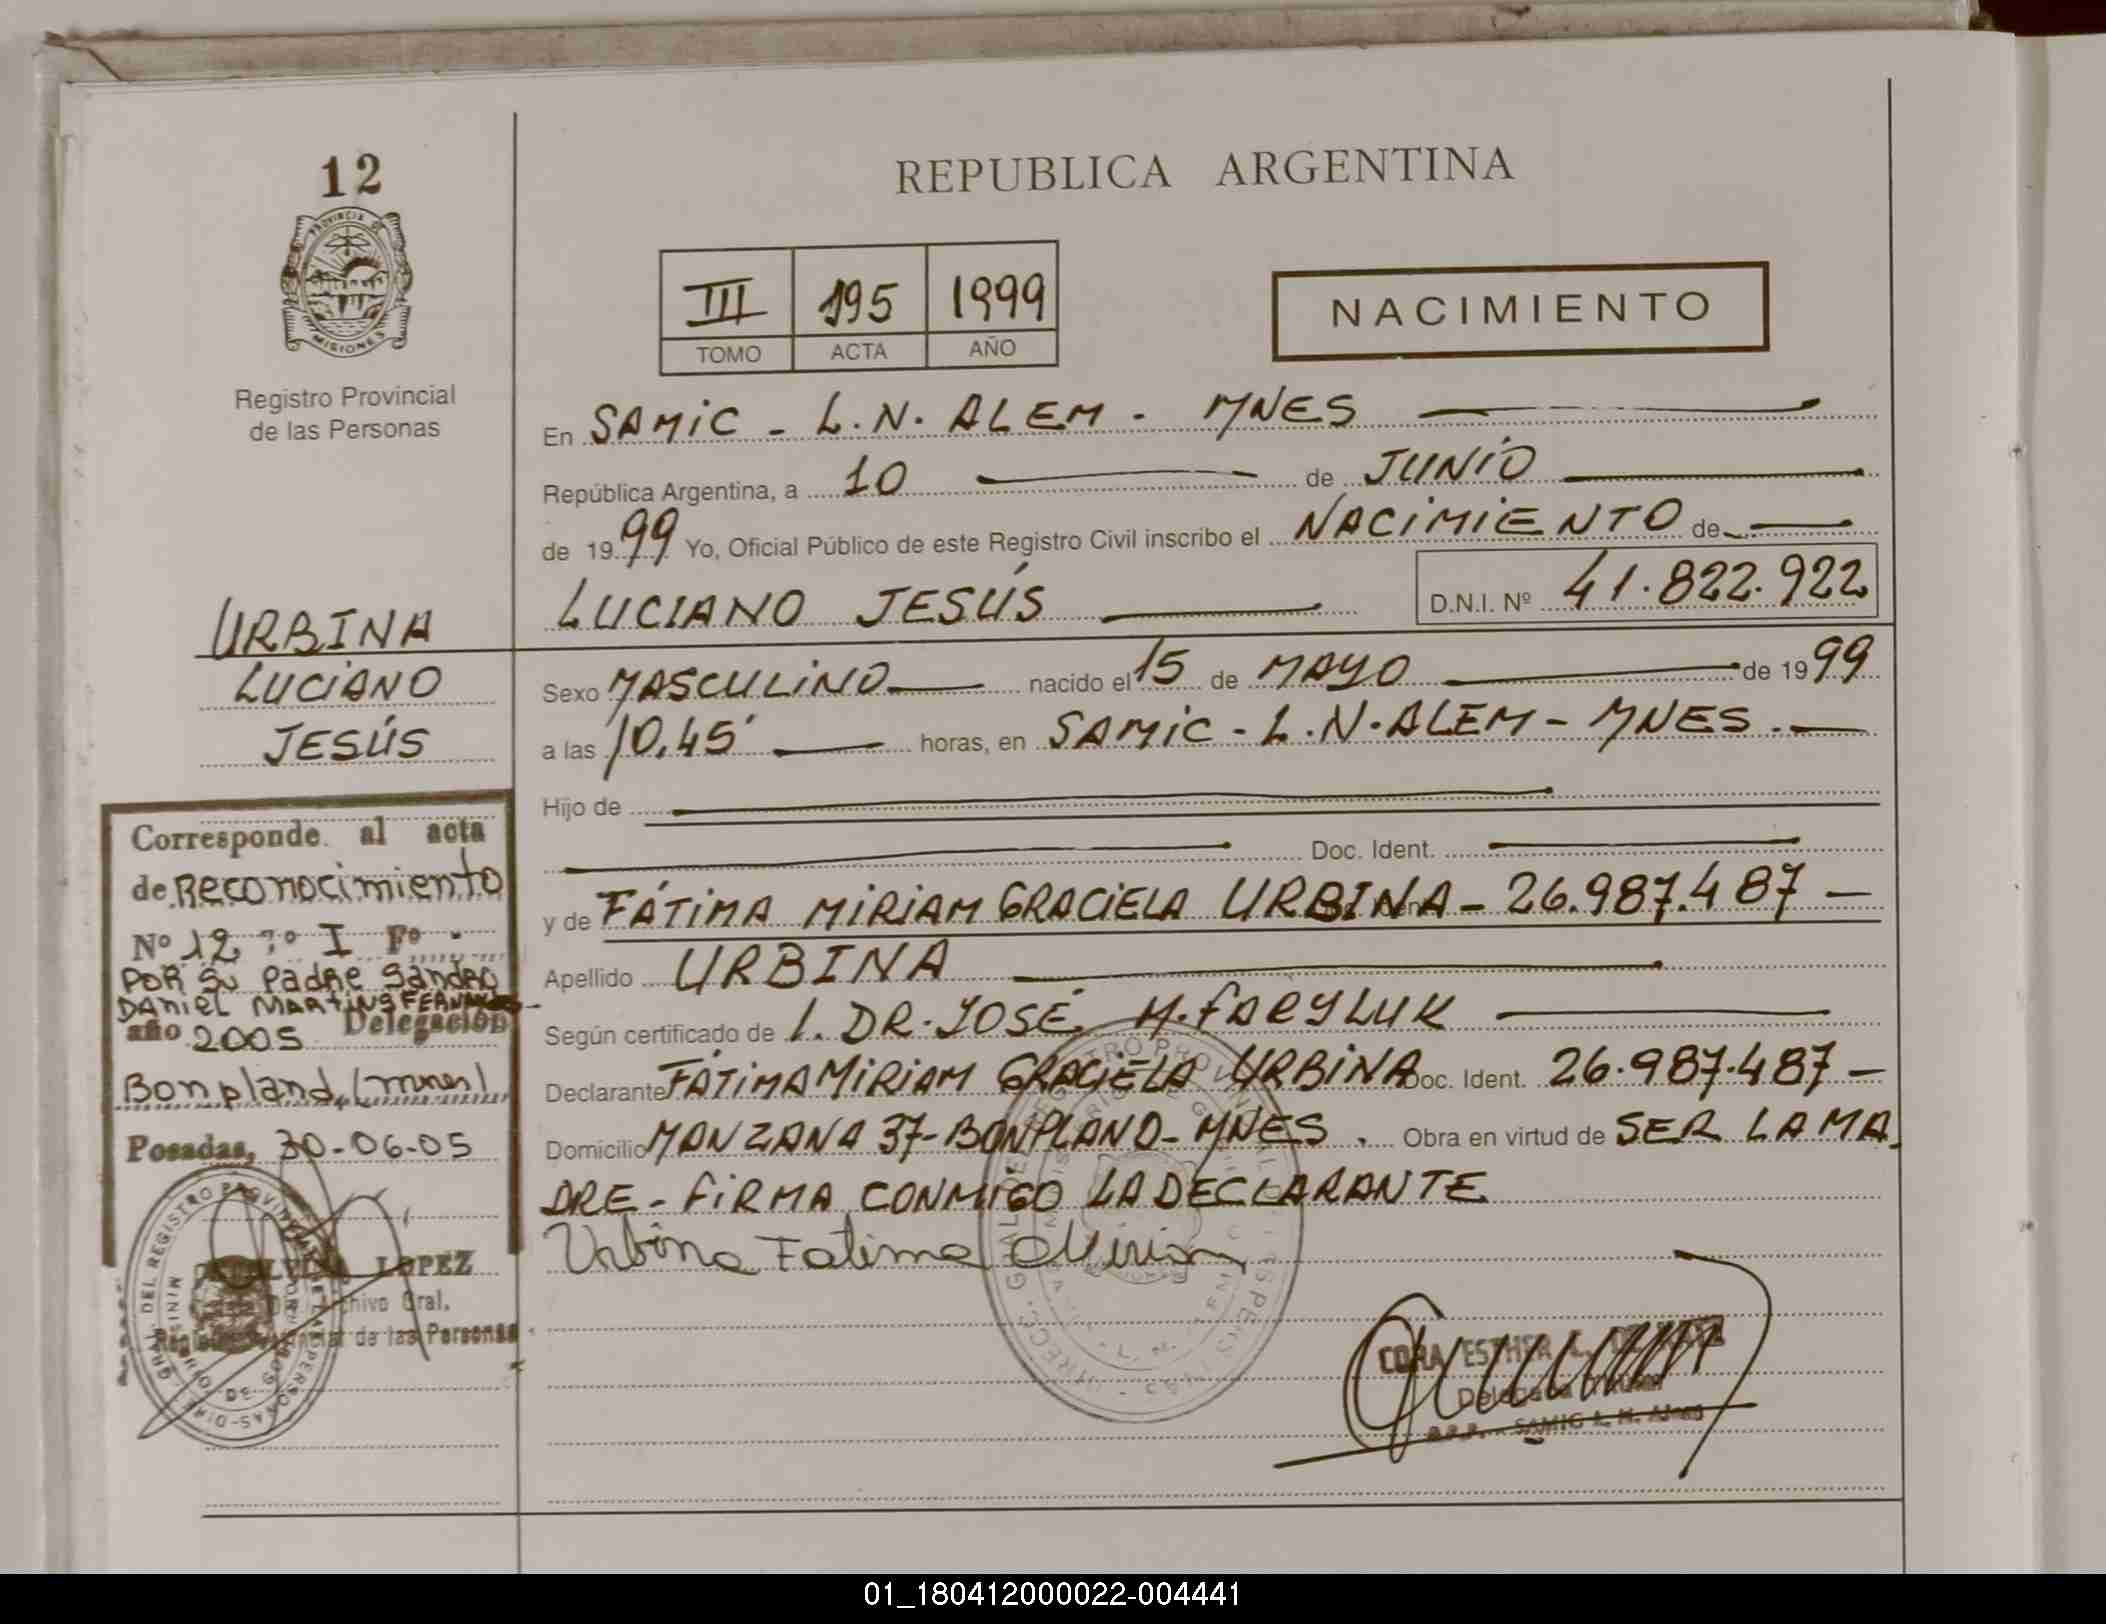 12
PROVINCIA DE
MISIONES
Registro Provincial
de las Personas
REPUBLICA ARGENTINA
III 195 1999
TOMO ACTA AÑO
NACIMIENTO
En SAMIC - L.N. ALEM - MNES
República Argentina, a 10 de JUNIO
de 1999 Yo, Oficial Público de este Registro Civil inscribo el NACIMIENTO de
LUCIANO JESÚS D.N.I. Nº 41.822.922
URBINA
LUCIANO
JESÚS
Sexo MASCULINO nacido el 15 de MAYO de 1999
a las 10,45' horas, en SAMIC - L.N. ALEM - MNES.
Hijo de
Doc. Ident.
y de FÁTIMA MIRIAM GRACIELA URBINA - 26.987.487 -
Apellido URBINA
Según certificado de L. DR. JOSÉ M. FARYLUK
Declarante FÁTIMA MIRIAM GRACIELA URBINA Doc. Ident. 26.987.487 -
Domicilio MANZANA 37 - BONPLAND - MNES. Obra en virtud de SER LA MA
DRE - FIRMA CONMIGO LA DECLARANTE
Urbina Fatima Miriam
Corresponde al acta
de Reconocimiento
Nº 12 Tº I Fº -
POR su Padre Sandro
Daniel Martins Fernandes
año 2005 Delegación
Bonpland (mnes)
Posadas, 30-06-05
LOPEZ
Archivo Gral.
Registro Provincial de las Personas
CORA ESTHER
Delegada Titular
SAMIC L. N. Alem
01_180412000022-004441